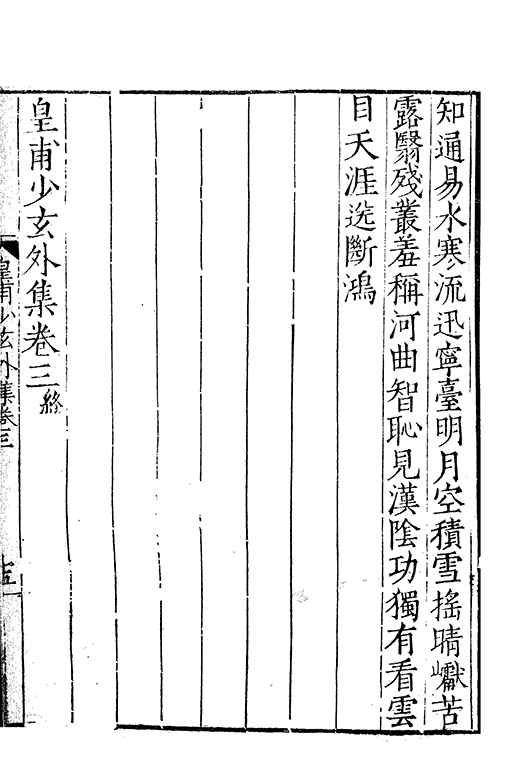 知通易水寒流迅寧臺明月空積雪搖晴巘苦
露翳殘叢羞稱河曲智恥見漢陰功獨有看雲
目天涯送斷鴻
皇甫少玄外集卷三終
皇甫少玄外集卷三
十五